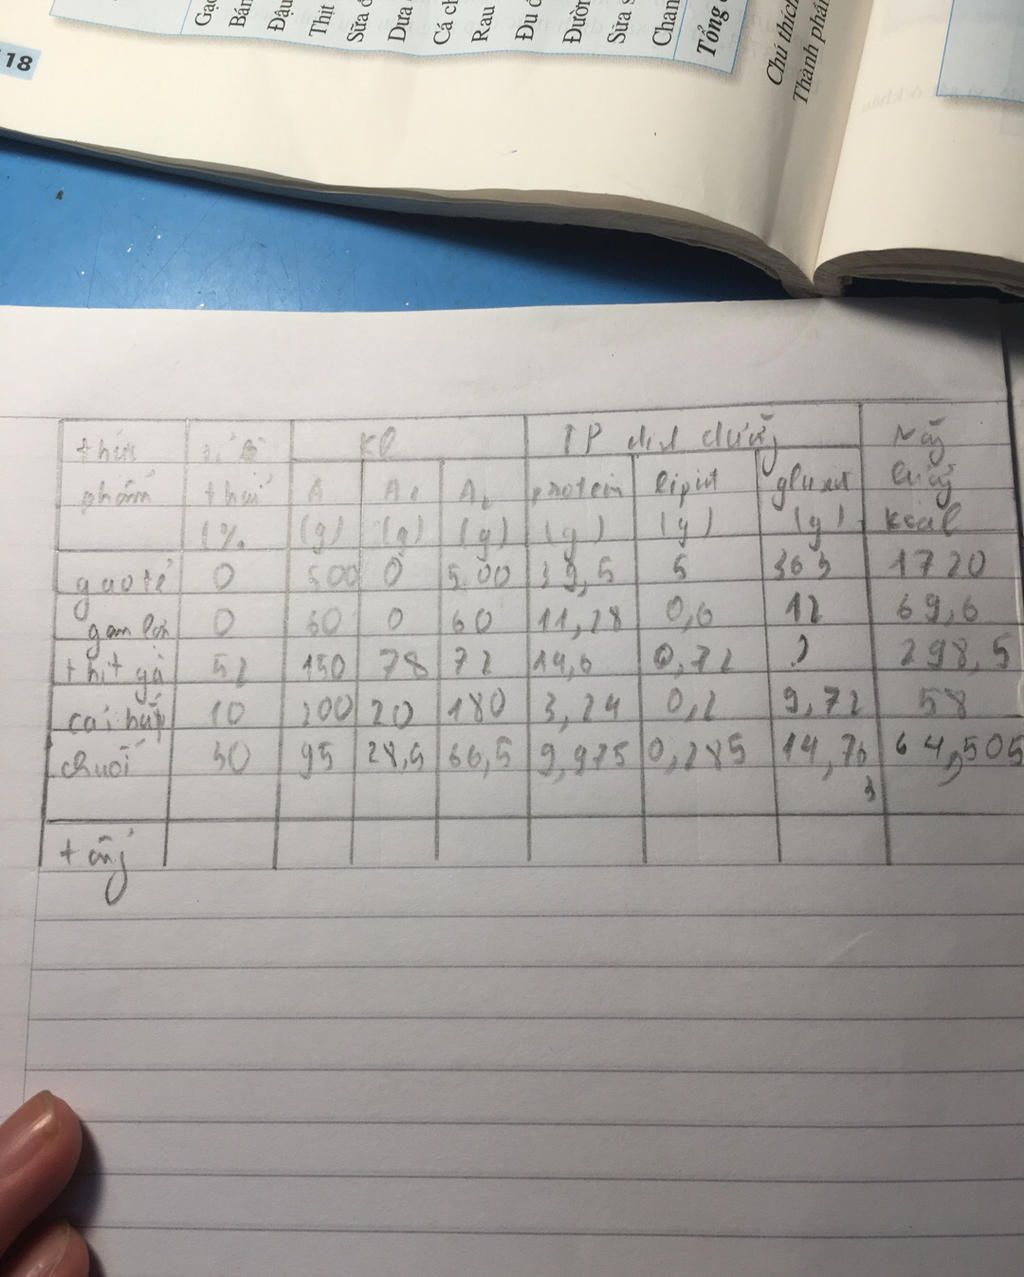 18
Gạo
Bán
Đậu
Thịt
Sữa đ
Dưa
Cá ch
Rau
Đu đ
Đườn
Sữa s
Chan
Tổng
Chú thích
Thành phần
thức KL TP dinh dưỡng Năng
phẩm thải A A₁ A₂ protein lipit gluxit lượng
(% (g) (g) (g) (g) (g) (g) kcal
gạo tẻ 0 500 0 500 39,5 5 363 1720
gan lợn 0 60 0 60 11,28 0,6 12 69,6
thịt gà 52 150 78 72 14,6 0,72 298,5
cải bắp 10 200 20 180 3,24 0,2 9,72 58
chuối 30 95 28,5 66,5 9,975 0,285 14,763 64,505
tổng